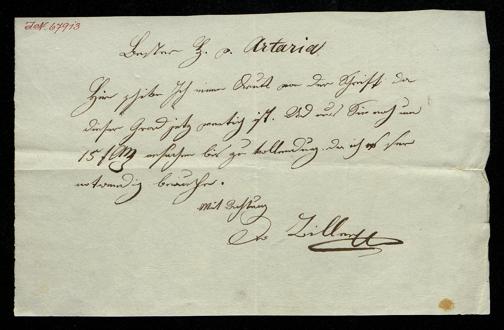 I.N. 67913
Bester H. v. Artaria
Hier schike Ich einen Druck von der Schrift da
dieser Grad jetz fertig ist. Und bitte Sie noch um
15 f CM bis zur Vollendung, da ich es sehr
notwendig brauche.
Mit Achtung
Ziller